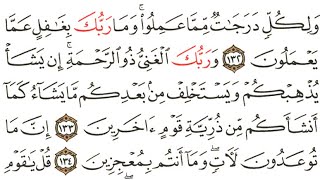 وَلِكُلٍّ دَرَجَـٰتٌ مِّمَّا عَمِلُوا۟ ۚ وَمَا رَبُّكَ بِغَـٰفِلٍ عَمَّا
يَعْمَلُونَ ١٣٢ وَرَبُّكَ ٱلْغَنِىُّ ذُو ٱلرَّحْمَةِ ۚ إِن يَشَأْ
يُذْهِبْكُمْ وَيَسْتَخْلِفْ مِنۢ بَعْدِكُم مَّا يَشَآءُ كَمَآ
أَنشَأَكُم مِّن ذُرِّيَّةِ قَوْمٍ ءَاخَرِينَ ١٣٣ إِنَّ مَا
تُوعَدُونَ لَـَٔاتٍ ۖ وَمَآ أَنتُم بِمُعْجِزِينَ ١٣٤ قُلْ يَـٰقَوْمِ